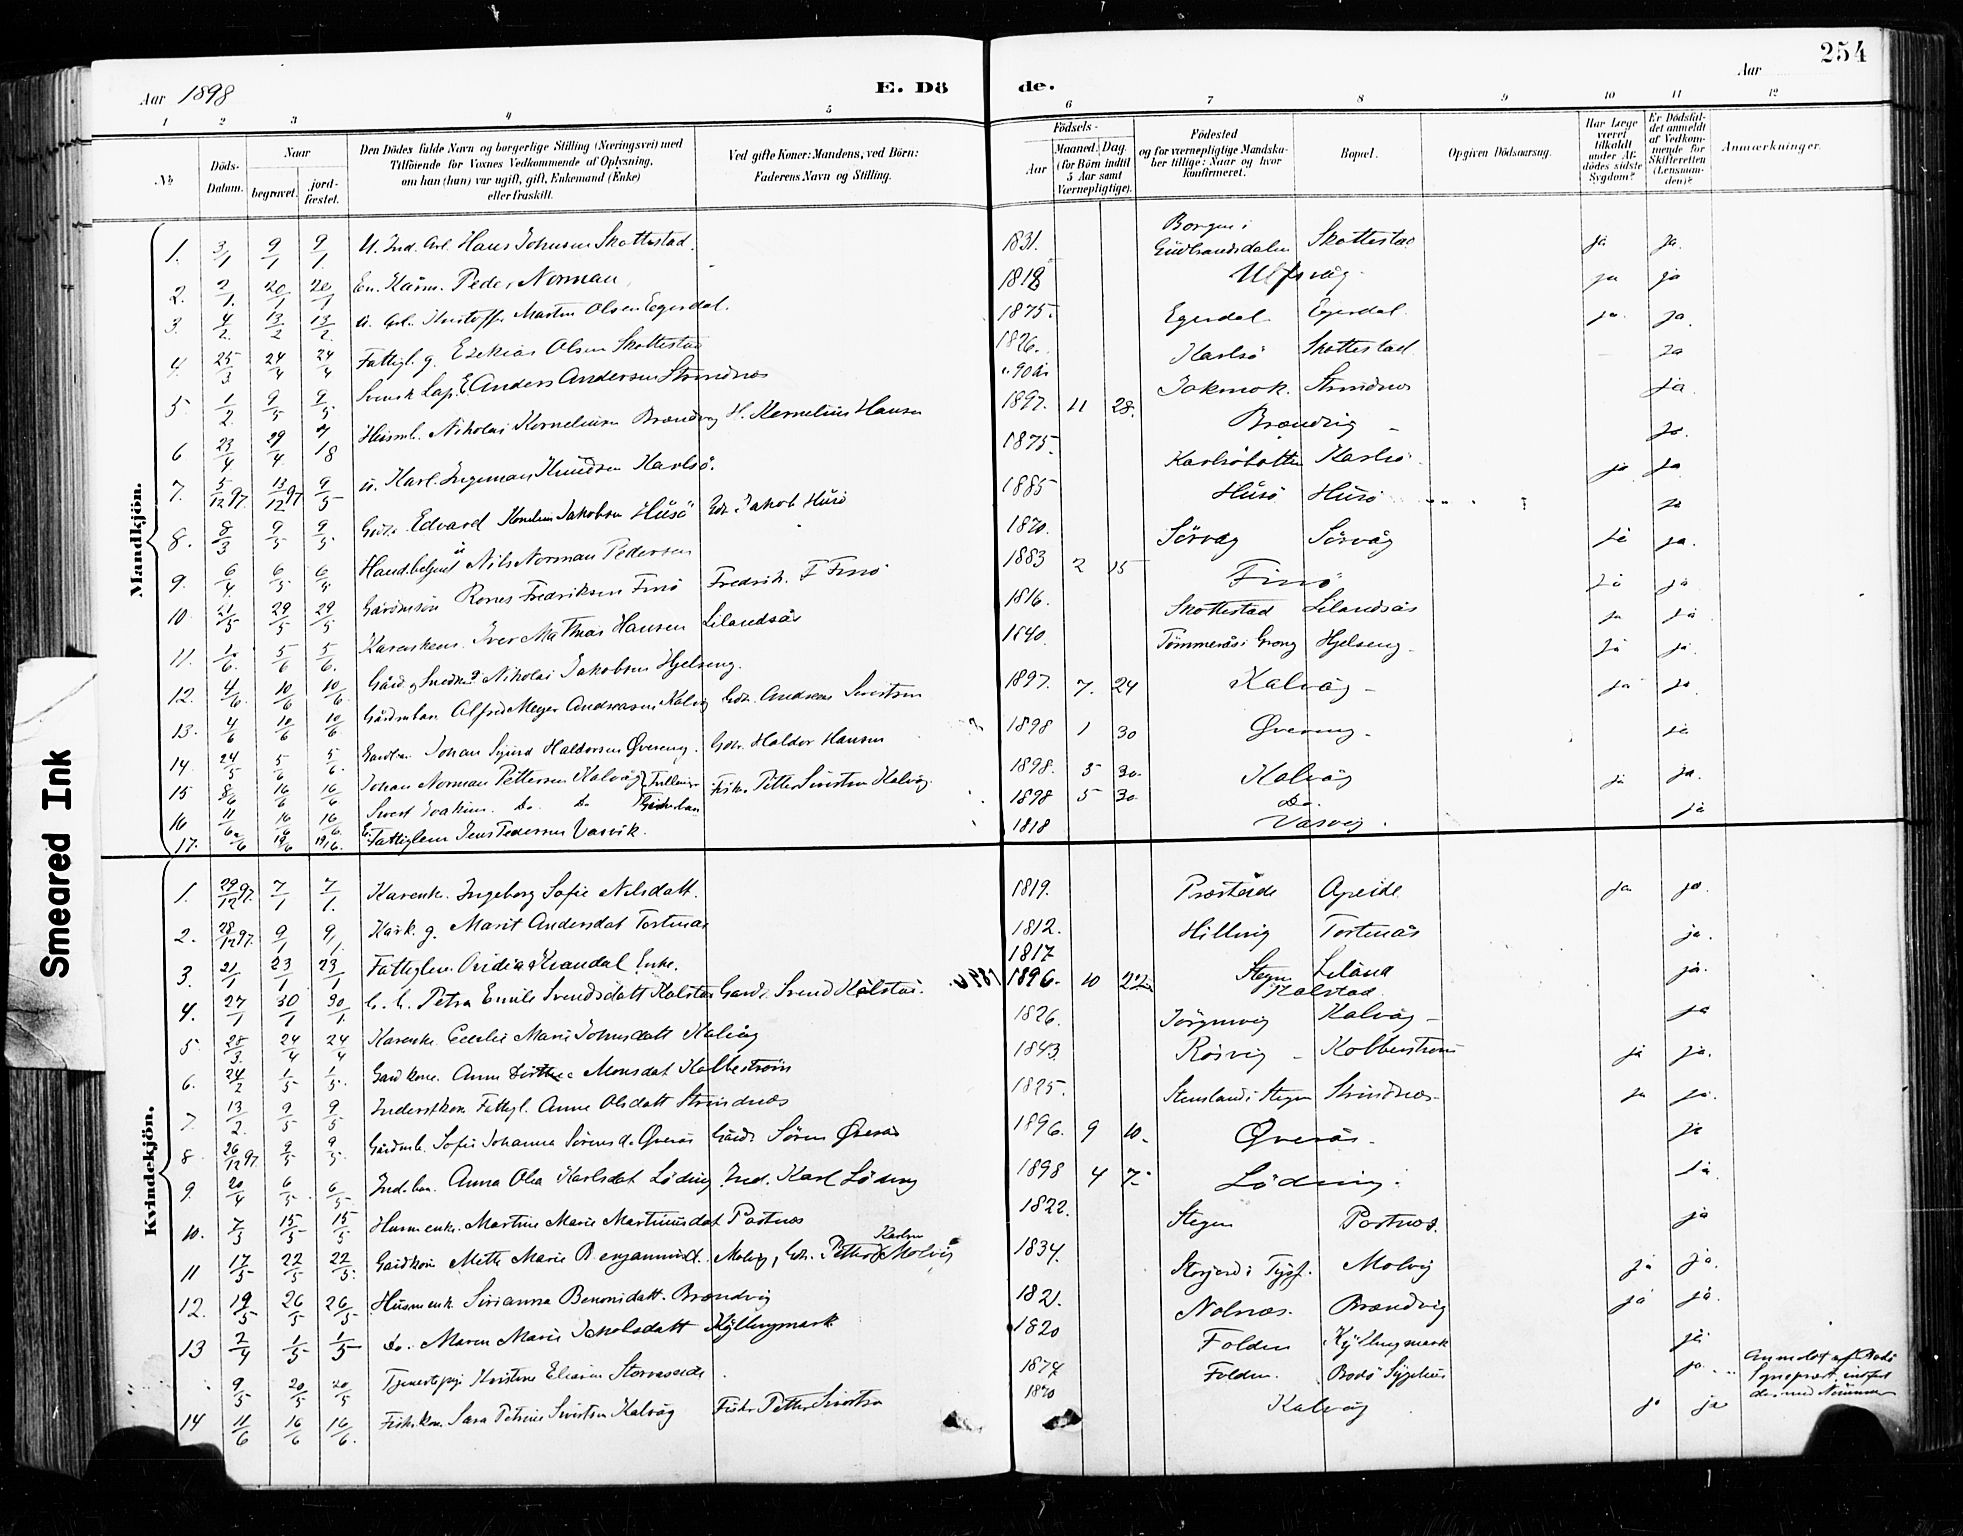 254
Aar 1898
E. Dö
de.
Aar
1 2 3 4 5 6 7 8 9 10 11 12
№
Döds-
Datum.
Naar
begravet.
jord-
fæstet.
Den Dödes fulde Navn og borgerlige Stilling (Næringsvei) med
Tilföiende for Voxnes Vedkommende af Oplysning,
om han (hun) var ugift, gift, Enkemand (Enke)
eller fraskilt.
Ved gifte Koner: Mandens, ved Börn:
Faderens Navn og Stilling.
Födsels-
Aar
Maaned. Dag.
(for Börn indtil
5 Aar samt
Værnepligtige).
Födested
og for værnepligtige Mandska-
ber tillige: Naar og hvor
konfirmeret.
Bopæl.
Opgiven Dödsaarsag.
Har Læge
været
tilkaldt
under Af-
dödes sidste
Sygdom?
Er Dödsfal-
det anmeldt
af Vedkom-
mende for
Skifteretten
(Lensman-
den)?
Anmærkninger.
Mandkjön.
1. 3/1 9/1 9/1. U. Ind. Arl. Hans Johnsen Skottestad. 1831. Borgen i Gudbrandsdalen Skottestad ja ja.
2. 2/1. 20/1 20/1 Em. Kårm. Peder Norman 1818 Ulfsvåg. ja ja
3. 4/2. 13/2 13/2. u. Arl. Kristoffer Martin Olsen Egerdal. 1875. Egerdal Egerdal. ja. ja.
4. 25/3 24/4 24/4 Fattigl. g. Ezekias Olsen Skottestad 1826. Karlsö Skottestad ja
5. 1/2. 9/5 9/5. Svensk Lap. E Anders Andersen Strindnes 90 år Jokmok. Strindnes ja.
6 23/4 29/4. 9/18 Husmb. Nikolai Kornelius Brændvig H. Kornelius Hansen 1897. 11 28. Brændvig ja.
7. 5/12 97. 13/12 97 9/5 u. Karl Ingeman Knudsen Karlsö. 1875. Karlsöbotten Karlsö. ja ja
8. 8/3 9/5 9/5. Edvard Kornelius Jakobsen Husö Gdr. Jakob Husö 1885 Husö Husö ja
9. 6/4 6/5. 6/5 Handelsbetjent Nils Norman Pedersen 1870. Sörvåg Sörvåg ja ja.
10 21/5 29/5 29/5. Gårdmsön Rones Fredriksen Finnö Fredrik. F Finnö 1883 2 15 Finnö ja ja
11. 1/6. 5/6 5/6. Kårenkem. Iver Mathias Hansen Lilandsås 1816. Skottestad Lilandsås ja ja
12. 4/6. 10/6 10/6. Gård. og Snedker Nikolai Jakobsen Hjelseng. 1840. Tömmerås i Grong Hjelseng ja ja
13. 4/6 10/6 10/6 Gårdmbarn Alfred Meyer Andreasen Kalvåg Gdr. Andreas Sivertsen 1897. 7. 24 Kalvåg ja ja
14. 24/5 5/6 5/6. Gardbn. Johan Sigurd Haldorsen Øvereng. Gdr. Haldor Hansen 1898 1 30 Øvereng. ja
15 8/6 16/6 16/6 Johan Norman Pettersen Kalvåg Tvillinge Fisker Petter Sivertsen Kalvåg. 1898. 5 30. Kalvåg ja ja.
16 11/6 16/6 16/6. Sivert Joakim. Do. Do 1898 5 30. Do. ja
17. 2/6 19/6 19/6. E. Fattiglem Jens Pedersen Vasvik. 1818 Vasvig.
Kvindekjön.
1. 29/12 97. 7/1 7/1. Kårenk. Ingeborg Sofie Nilsdatt. 1819. Presteide Apeide ja ja.
2. 28/12 97. 9/1 9/1. Kårk. g. Marit Andersdat Tortenås 1812. Hilling Tortenås ja.
3. 21/1 23/1 23/1 Fattiglem. Ovidia Krandal Enke. 1817 Stegen Liland ja.
4. 27/1 30/1 30/1. Petra Emilie Svendsdatt Kalstad Gard. Svend Kalstad. 1896. 10 22 Kalstad
5 28/3. 24/4 24/4 Kårenk. Cecelie Marie Johnsdatt Kalvåg 1826. Jörgensvig Kalvåg ja
6. 24/2 1/5 1/5. Gårdkone. Anne Dorthea Monsdat Kobbestrøm 1843. Rösvig Kobbestrøm ja ja.
7. 13/2. 9/5 9/5 Inderstkon. Fattigl. Anne Olsdatt Strindnes 1825. Stensland i Stegen Strindnes ja ja.
8 26/12 97. 9/5 9/5. Gårdmb. Sofie Johanna Sörensd. Øverås Gårdb. Sören Øverås 1896. 9 10. Øverås. ja
9. 20/4 6/5. 6/5. Ind. barn. Anna Olea Karlsdat Löding Ind. Karl Löding 1898 4 7. Löding. ja
10. 7/5 15/5 15/5 Husmenk. Martine Marie Martinusdat Portnes 1822. Stegen Portnes. ja
11 17/5 22/5 22/5. Gårdkone Mette Marie Benjaminsd. Molvig, Gdr. Petter Karlsen Molvig 1834. Storjord i Tysf. Molvig ja ja.
12. 19/5 26/5 26/5 Husmenk Sirianna Benonidatt. Brændvig 1821. Nolnæs. Brændvig ja ja.
13 2/4 1/5 1/5 Do. Maren Marie Jakobsdatt Kyllingmark 1820 Folden Kyllingmark ja
9/5 20/5 20/5 Tjenestepig. Kristine Eliasen Storvaseide 1874 Folden. Bodö Sygehus ja.
14 11/6 16/6 16/6. Fiskerkone. Sara Petrine Sivertsen Kalvåg Fisker Petter Sivertsen 1870 Kalvåg ja ja
Smeared Ink